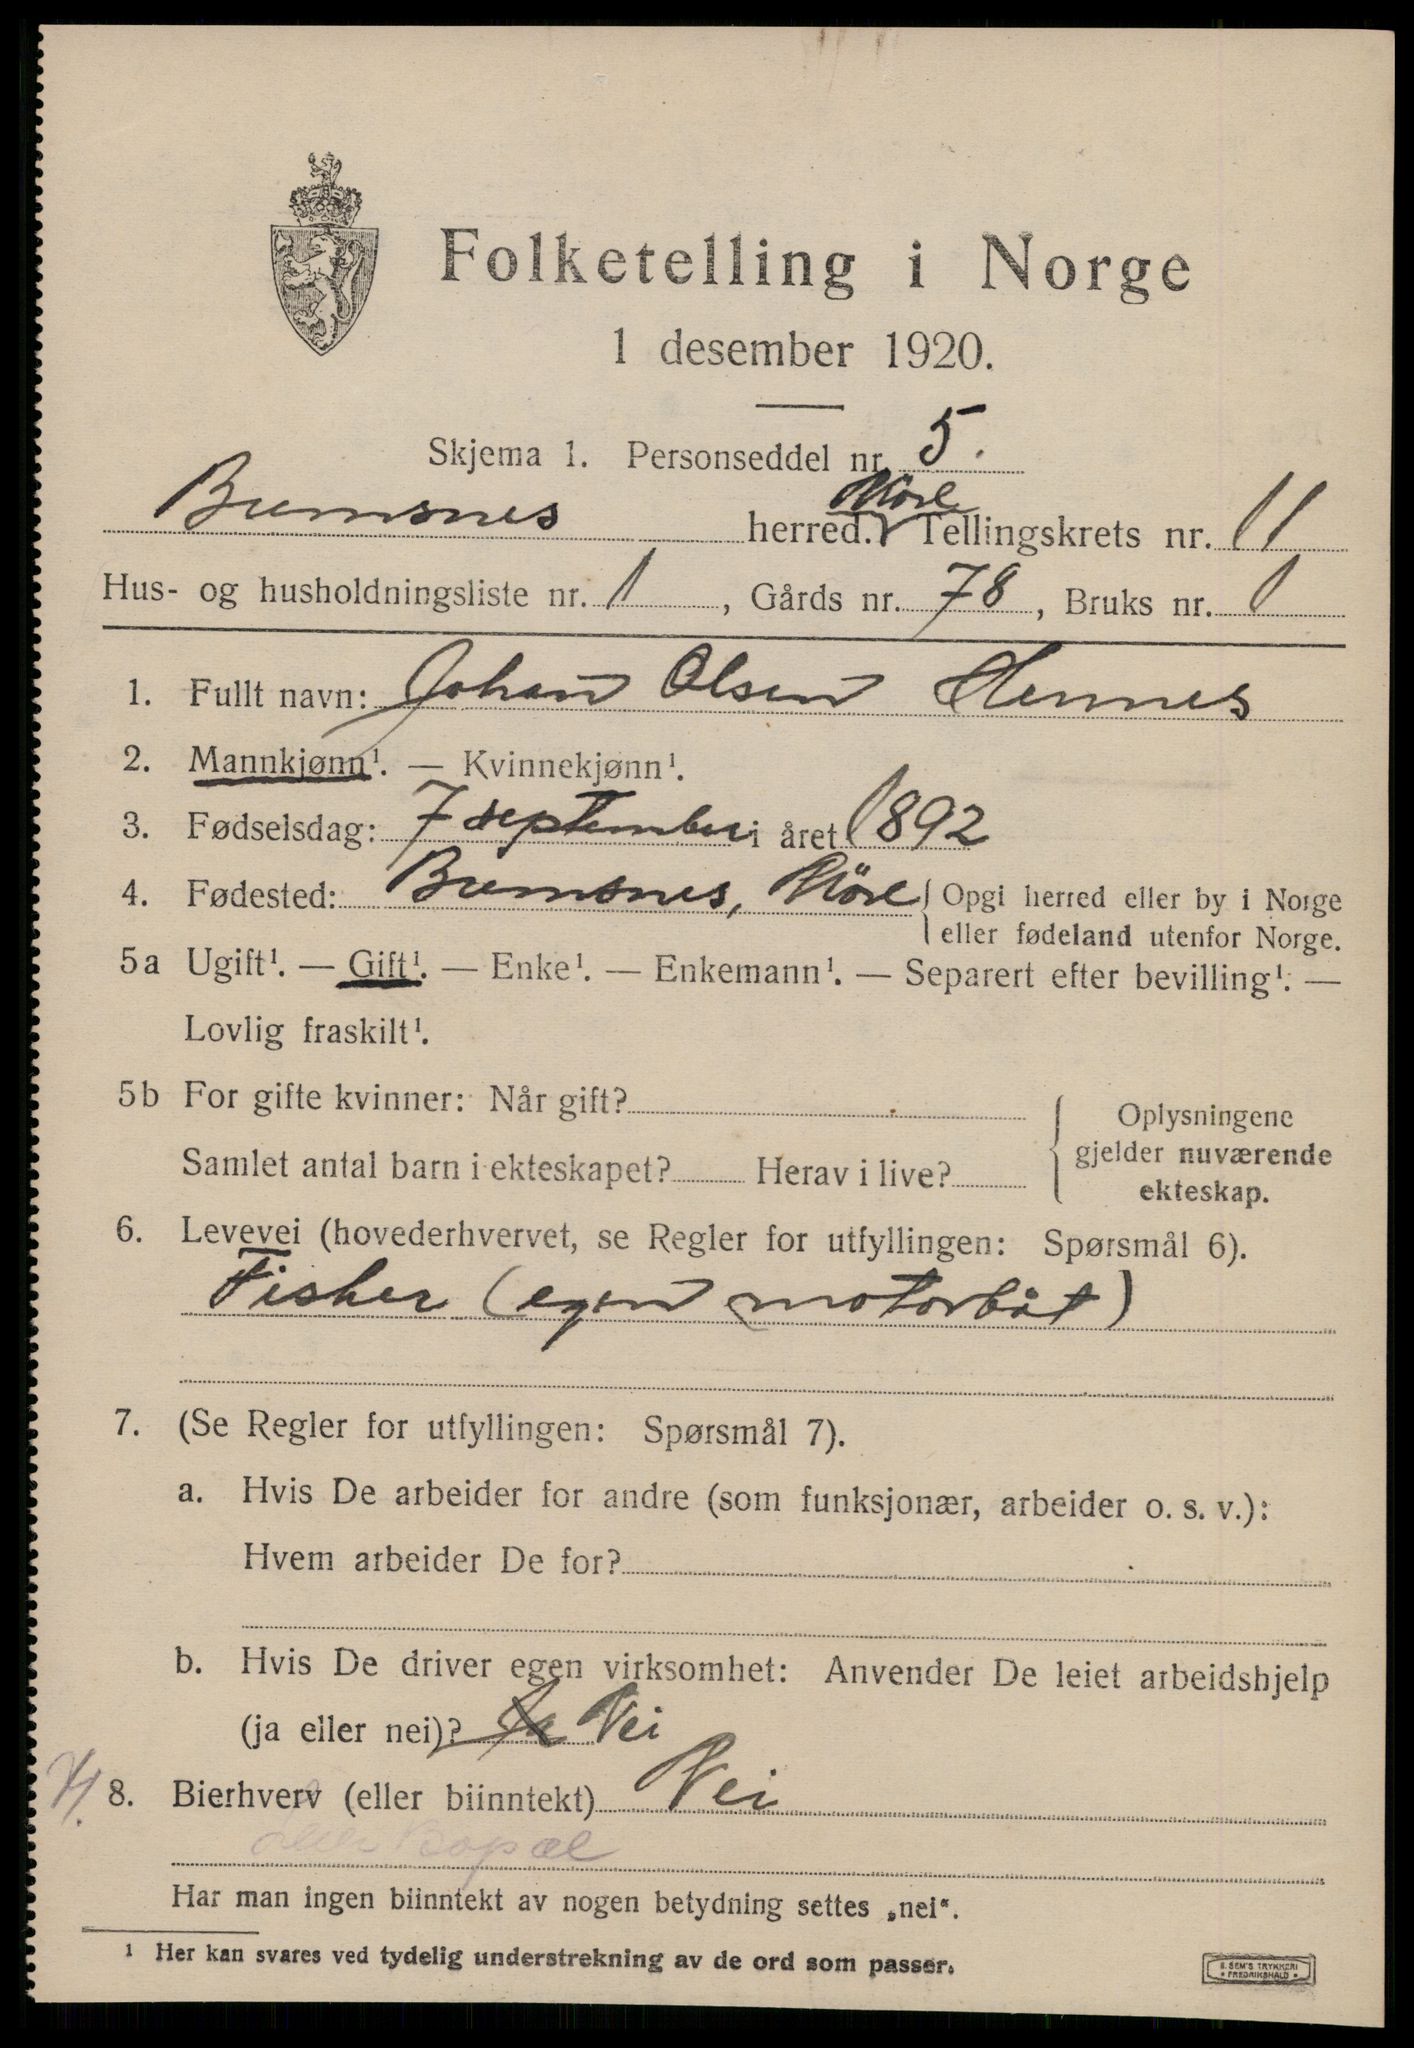 Folketelling i Norge
1 desember 1920.
Skjema 1. Personseddel nr. 5.
Bremsnes herred. Möre Tellingskrets nr. 11
Hus- og husholdningsliste nr. 1, Gårds nr. 78, Bruks nr. 1
1. Fullt navn: Johan Olsen Hennes
2. Mannkjønn¹. — Kvinnekjønn¹.
3. Fødselsdag: 7 september i året 1892
4. Fødested: Bremsnes, Möre { Opgi herred eller by i Norge
eller fødeland utenfor Norge.
5a Ugift¹. — Gift¹. — Enke¹. — Enkemann¹. — Separert efter bevilling¹. —
Lovlig fraskilt¹.
5b For gifte kvinner: Når gift?
Samlet antal barn i ekteskapet? Herav i live?
Oplysningene
gjelder nuværende
ekteskap.
6. Levevei (hovederhvervet, se Regler for utfyllingen: Spørsmål 6).
Fisker (egen motorbåt)
7. (Se Regler for utfyllingen: Spørsmål 7).
a. Hvis De arbeider for andre (som funksjonær, arbeider o. s. v.):
Hvem arbeider De for?
b. Hvis De driver egen virksomhet: Anvender De leiet arbeidshjelp
(ja eller nei)? Ja Nei
8. Bierhverv (eller biinntekt) Nei
Har man ingen biinntekt av nogen betydning settes „nei".
¹ Her kan svares ved tydelig understrekning av de ord som passer.
E. SEM'S TRYKKERI
FREDRIKSHALD